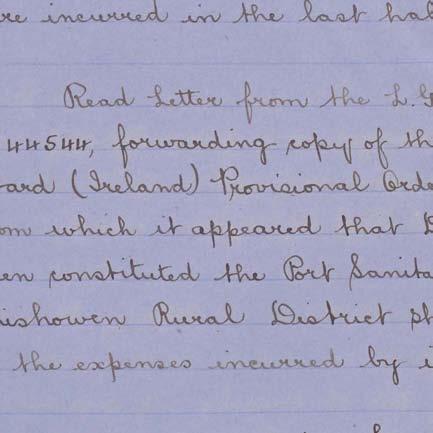 re incurred in the last hal
Read Letter from the L. G
44544, forwarding copy of th
ard (Ireland) Provisional Orde
om which it appeared that
en constituted the Port Sanita
ishowen Rural District sh
the expenses incurred by i